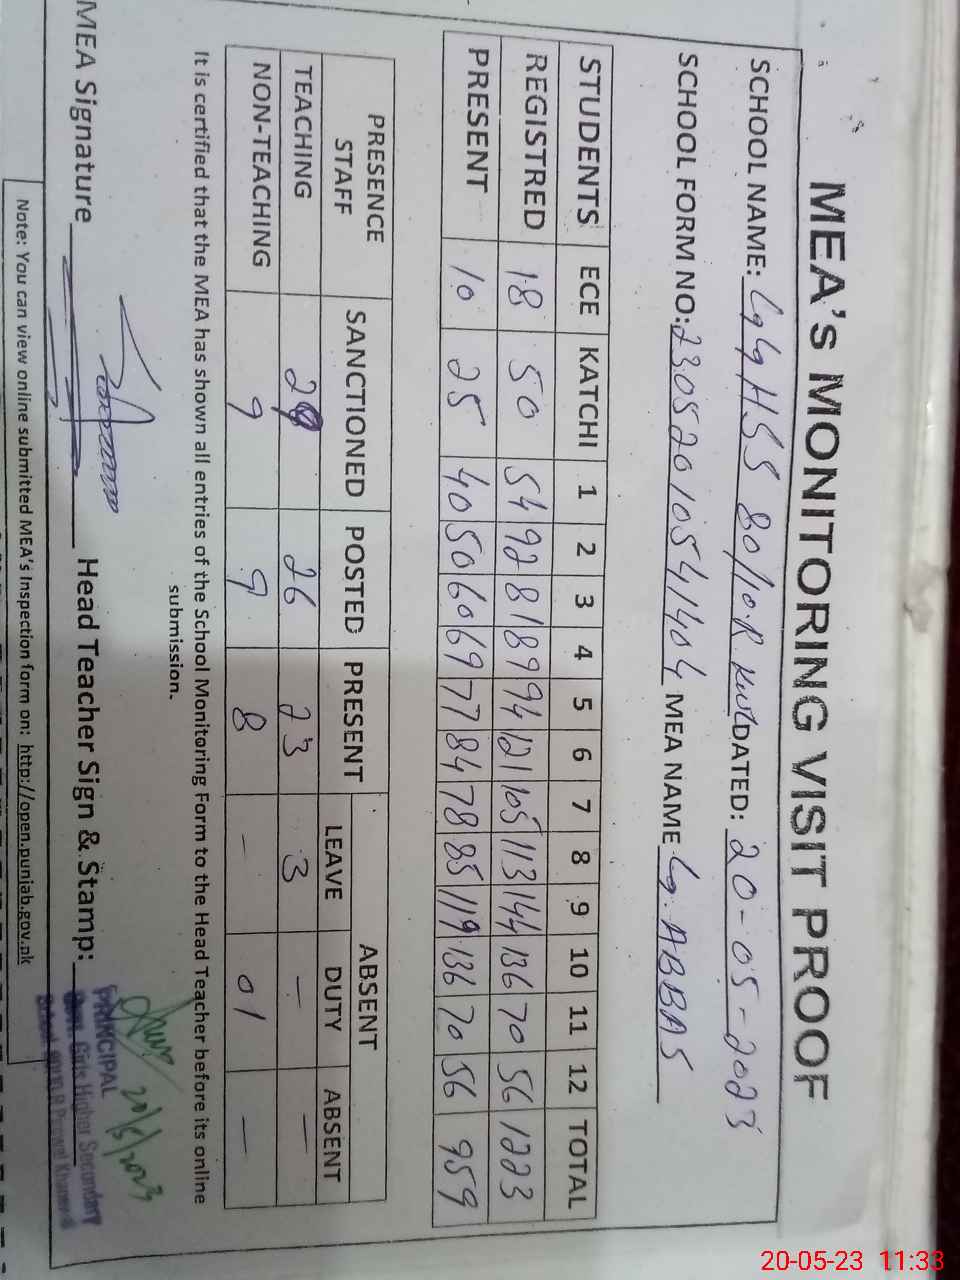 MEA's MONITORING VISIT PROOF
SCHOOL NAME: GGHSS 80/10.R KWL DATED: 20-05-2023
SCHOOL FORM NO: 23052010541404 MEA NAME G. ABBAS
STUDENTS ECE KATCHI 1 2 3 4 5 6 7 8 9 10 11 12 TOTAL
REGISTRED 18 50 54 92 81 89 94 121 105 113 144 136 70 56 1223
PRESENT 10 25 40 50 60 69 77 84 78 85 119 136 70 56 959
PRESENCE STAFF SANCTIONED POSTED PRESENT ABSENT
LEAVE DUTY ABSENT
TEACHING 26 23 3 — —
NON-TEACHING 9 9 8 — 01 —
It is certified that the MEA has shown all entries of the School Monitoring Form to the Head Teacher before its online
submission.
20/5/2023
MEA Signature Head Teacher Sign & Stamp:
PRINCIPAL
Govt. Girls Higher Secondary
School
Note: You can view online submitted MEA's Inspection form on: http://open.punjab.gov.pk
20-05-23 11:33